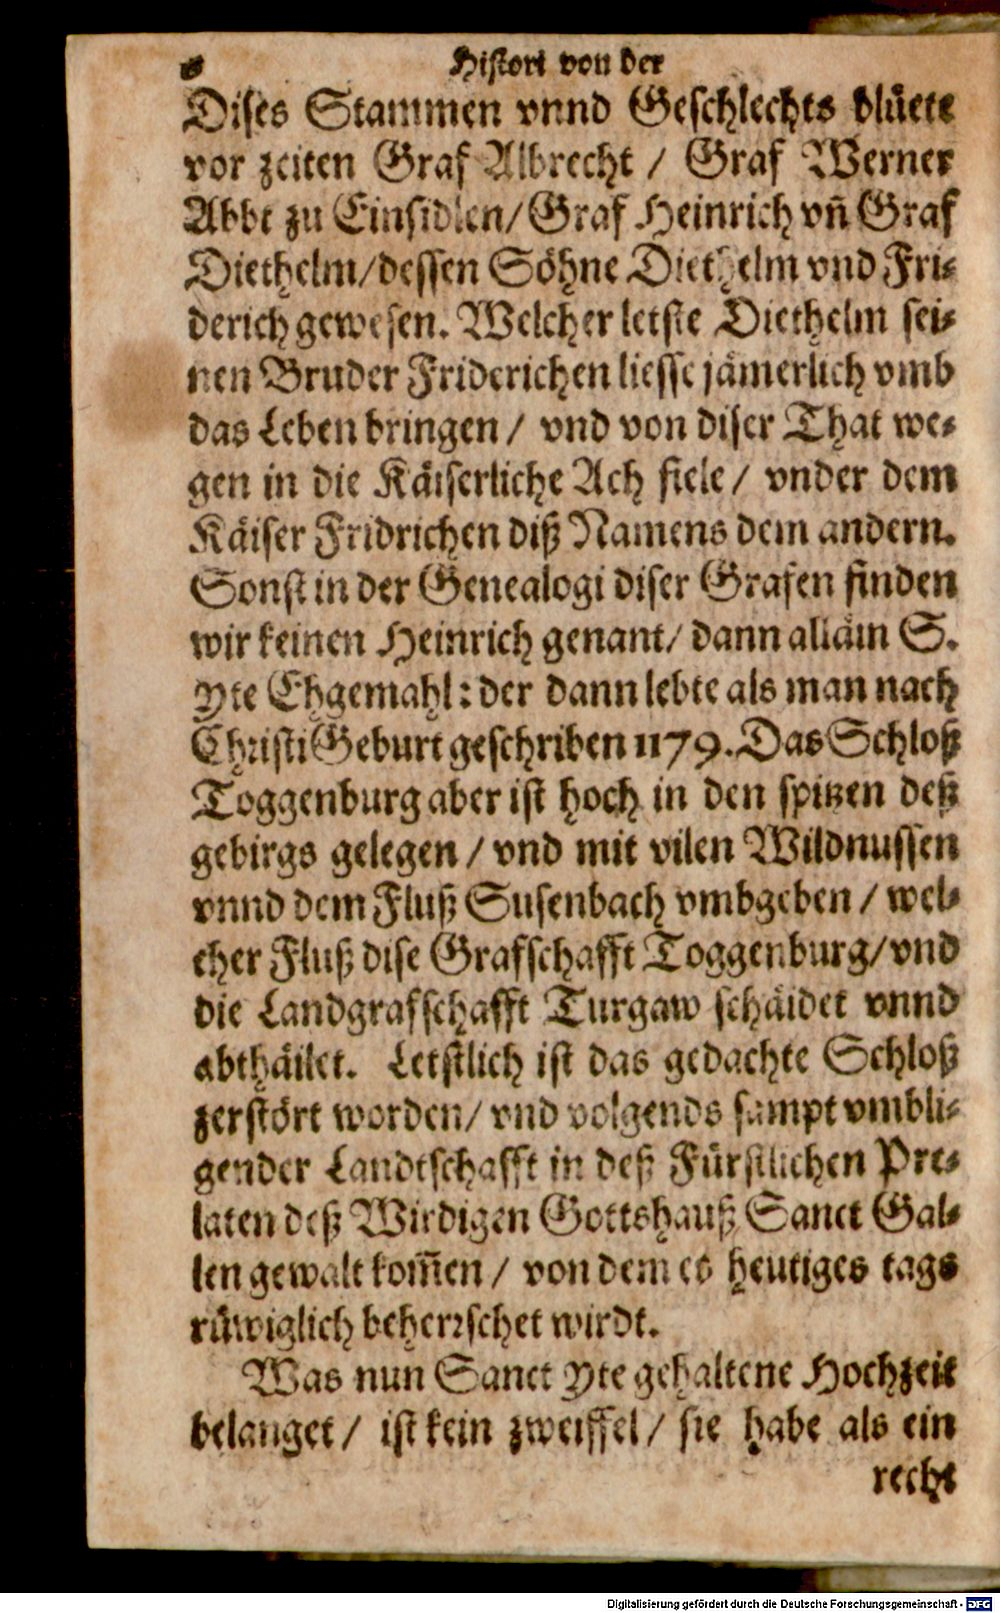 Histori von der
Dises Stammen vnnd Geschlechts blüete
vor zeiten Graf Albrecht / Graf Werner
Abbt zu Einsidlen / Graf Heinrich vn̄ Graf
Diethelm / dessen Söhne Diethelm vnd Fri-
derich gewesen. Welcher letste Diethelm sei-
nen Bruder Friderichen liesse jämerlich vmb
das Leben bringen / vnd von diser That we-
gen in die Käiserliche Ach fiele / vnder dem
Käiser Fridrichen diß Namens dem andern.
Sonst in der Genealogi diser Grafen finden
wir keinen Heinrich genant / dann alläin S.
Yte Ehgemahl: der dann lebte als man nach
Christi Geburt geschriben 1179. Das Schloß
Toggenburg aber ist hoch in den spitzen deß
gebirgs gelegen / vnd mit vilen Wildnussen
vnnd dem Fluß Susenbach vmbgeben / wel-
cher Fluß dise Grafschafft Toggenburg / vnd
die Landgrafschafft Turgaw schäidet vnnd
abthäilet. Letstlich ist das gedachte Schloß
zerstört worden / vnd volgends sampt vmbli-
gender Landtschafft in deß Fürstlichen Pre-
laten deß Wirdigen Gottshauß Sanct Gal-
len gewalt kom̄en / von dem es heutiges tags
rüwiglich beherrschet wirdt.
Was nun Sanct Yte gehaltene Hochzeit
belanget / ist kein zweiffel / sie habe als ein
recht
Digitalisierung gefördert durch die Deutsche Forschungsgemeinschaft - DFG